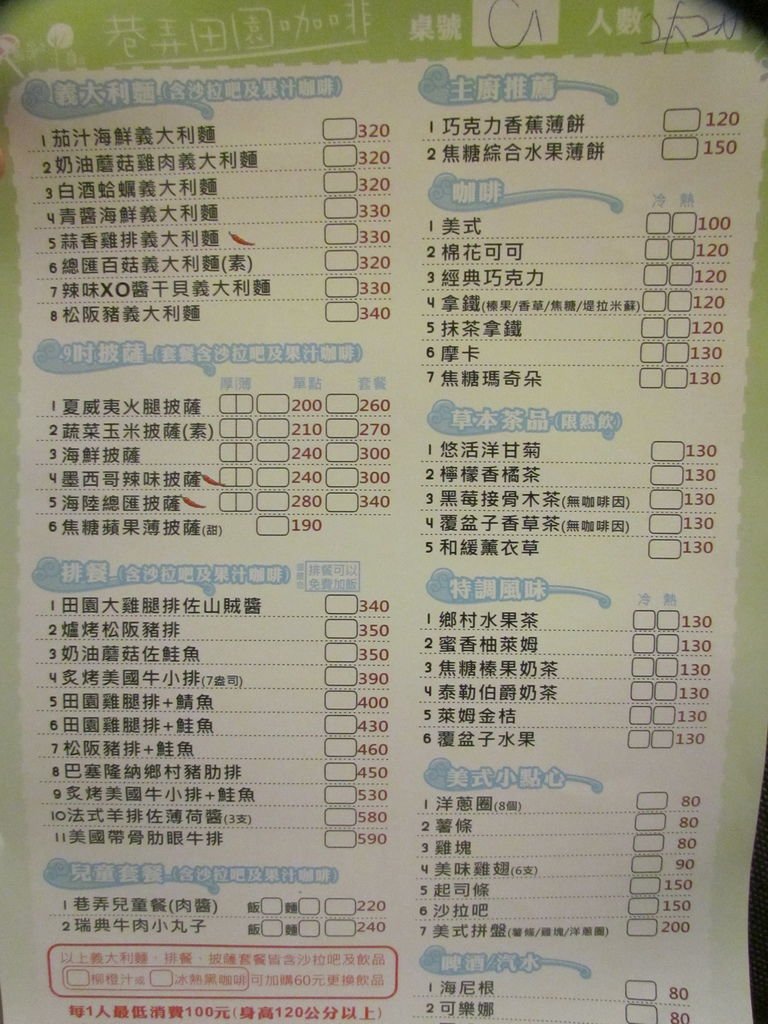 巷弄田園咖啡 桌號 C1 人數
義大利麵(含沙拉吧及果汁咖啡)
1 茄汁海鮮義大利麵 320
2 奶油蘑菇雞肉義大利麵 320
3 白酒蛤蠣義大利麵 320
4 青醬海鮮義大利麵 330
5 蒜香雞排義大利麵 330
6 總匯百菇義大利麵(素) 320
7 辣味XO醬干貝義大利麵 330
8 松阪豬義大利麵 340
9吋披薩(套餐含沙拉吧及果汁咖啡)
厚 薄 單點 套餐
1 夏威夷火腿披薩 200 260
2 蔬菜玉米披薩(素) 210 270
3 海鮮披薩 240 300
4 墨西哥辣味披薩 240 300
5 海陸總匯披薩 280 340
6 焦糖蘋果薄披薩(甜) 190
排餐(含沙拉吧及果汁咖啡) 排餐可以
免費加飯
1 田園大雞腿排佐山賊醬 340
2 爐烤松阪豬排 350
3 奶油蘑菇佐鮭魚 350
4 炙烤美國牛小排(7盎司) 390
5 田園雞腿排+鯖魚 400
6 田園雞腿排+鮭魚 430
7 松阪豬排+鮭魚 460
8 巴塞隆納鄉村豬肋排 450
9 炙烤美國牛小排+鮭魚 530
10 法式羊排佐薄荷醬(3支) 580
11 美國帶骨肋眼牛排 590
兒童套餐(含沙拉吧及果汁咖啡)
1 巷弄兒童餐(肉醬) 飯 麵 220
2 瑞典牛肉小丸子 飯 麵 240
以上義大利麵、排餐、披薩套餐皆含沙拉吧及飲品
柳橙汁或 冰熱黑咖啡 可加購60元更換飲品
每1人最低消費100元(身高120公分以上)
主廚推薦
1 巧克力香蕉薄餅 120
2 焦糖綜合水果薄餅 150
咖啡 冷 熱
1 美式 100
2 棉花可可 120
3 經典巧克力 120
4 拿鐵(榛果/香草/焦糖/堤拉米蘇) 120
5 抹茶拿鐵 120
6 摩卡 130
7 焦糖瑪奇朵 130
草本茶品(限熱飲)
1 悠活洋甘菊 130
2 檸檬香橘茶 130
3 黑莓接骨木茶(無咖啡因) 130
4 覆盆子香草茶(無咖啡因) 130
5 和緩薰衣草 130
特調風味 冷 熱
1 鄉村水果茶 130
2 蜜香柚萊姆 130
3 焦糖榛果奶茶 130
4 泰勒伯爵奶茶 130
5 萊姆金桔 130
6 覆盆子水果 130
美式小點心
1 洋蔥圈(8個) 80
2 薯條 80
3 雞塊 80
4 美味雞翅(6支) 90
5 起司條 150
6 沙拉吧 150
7 美式拼盤(薯條/雞塊/洋蔥圈) 200
啤酒/汽水
1 海尼根 80
2 可樂娜 80